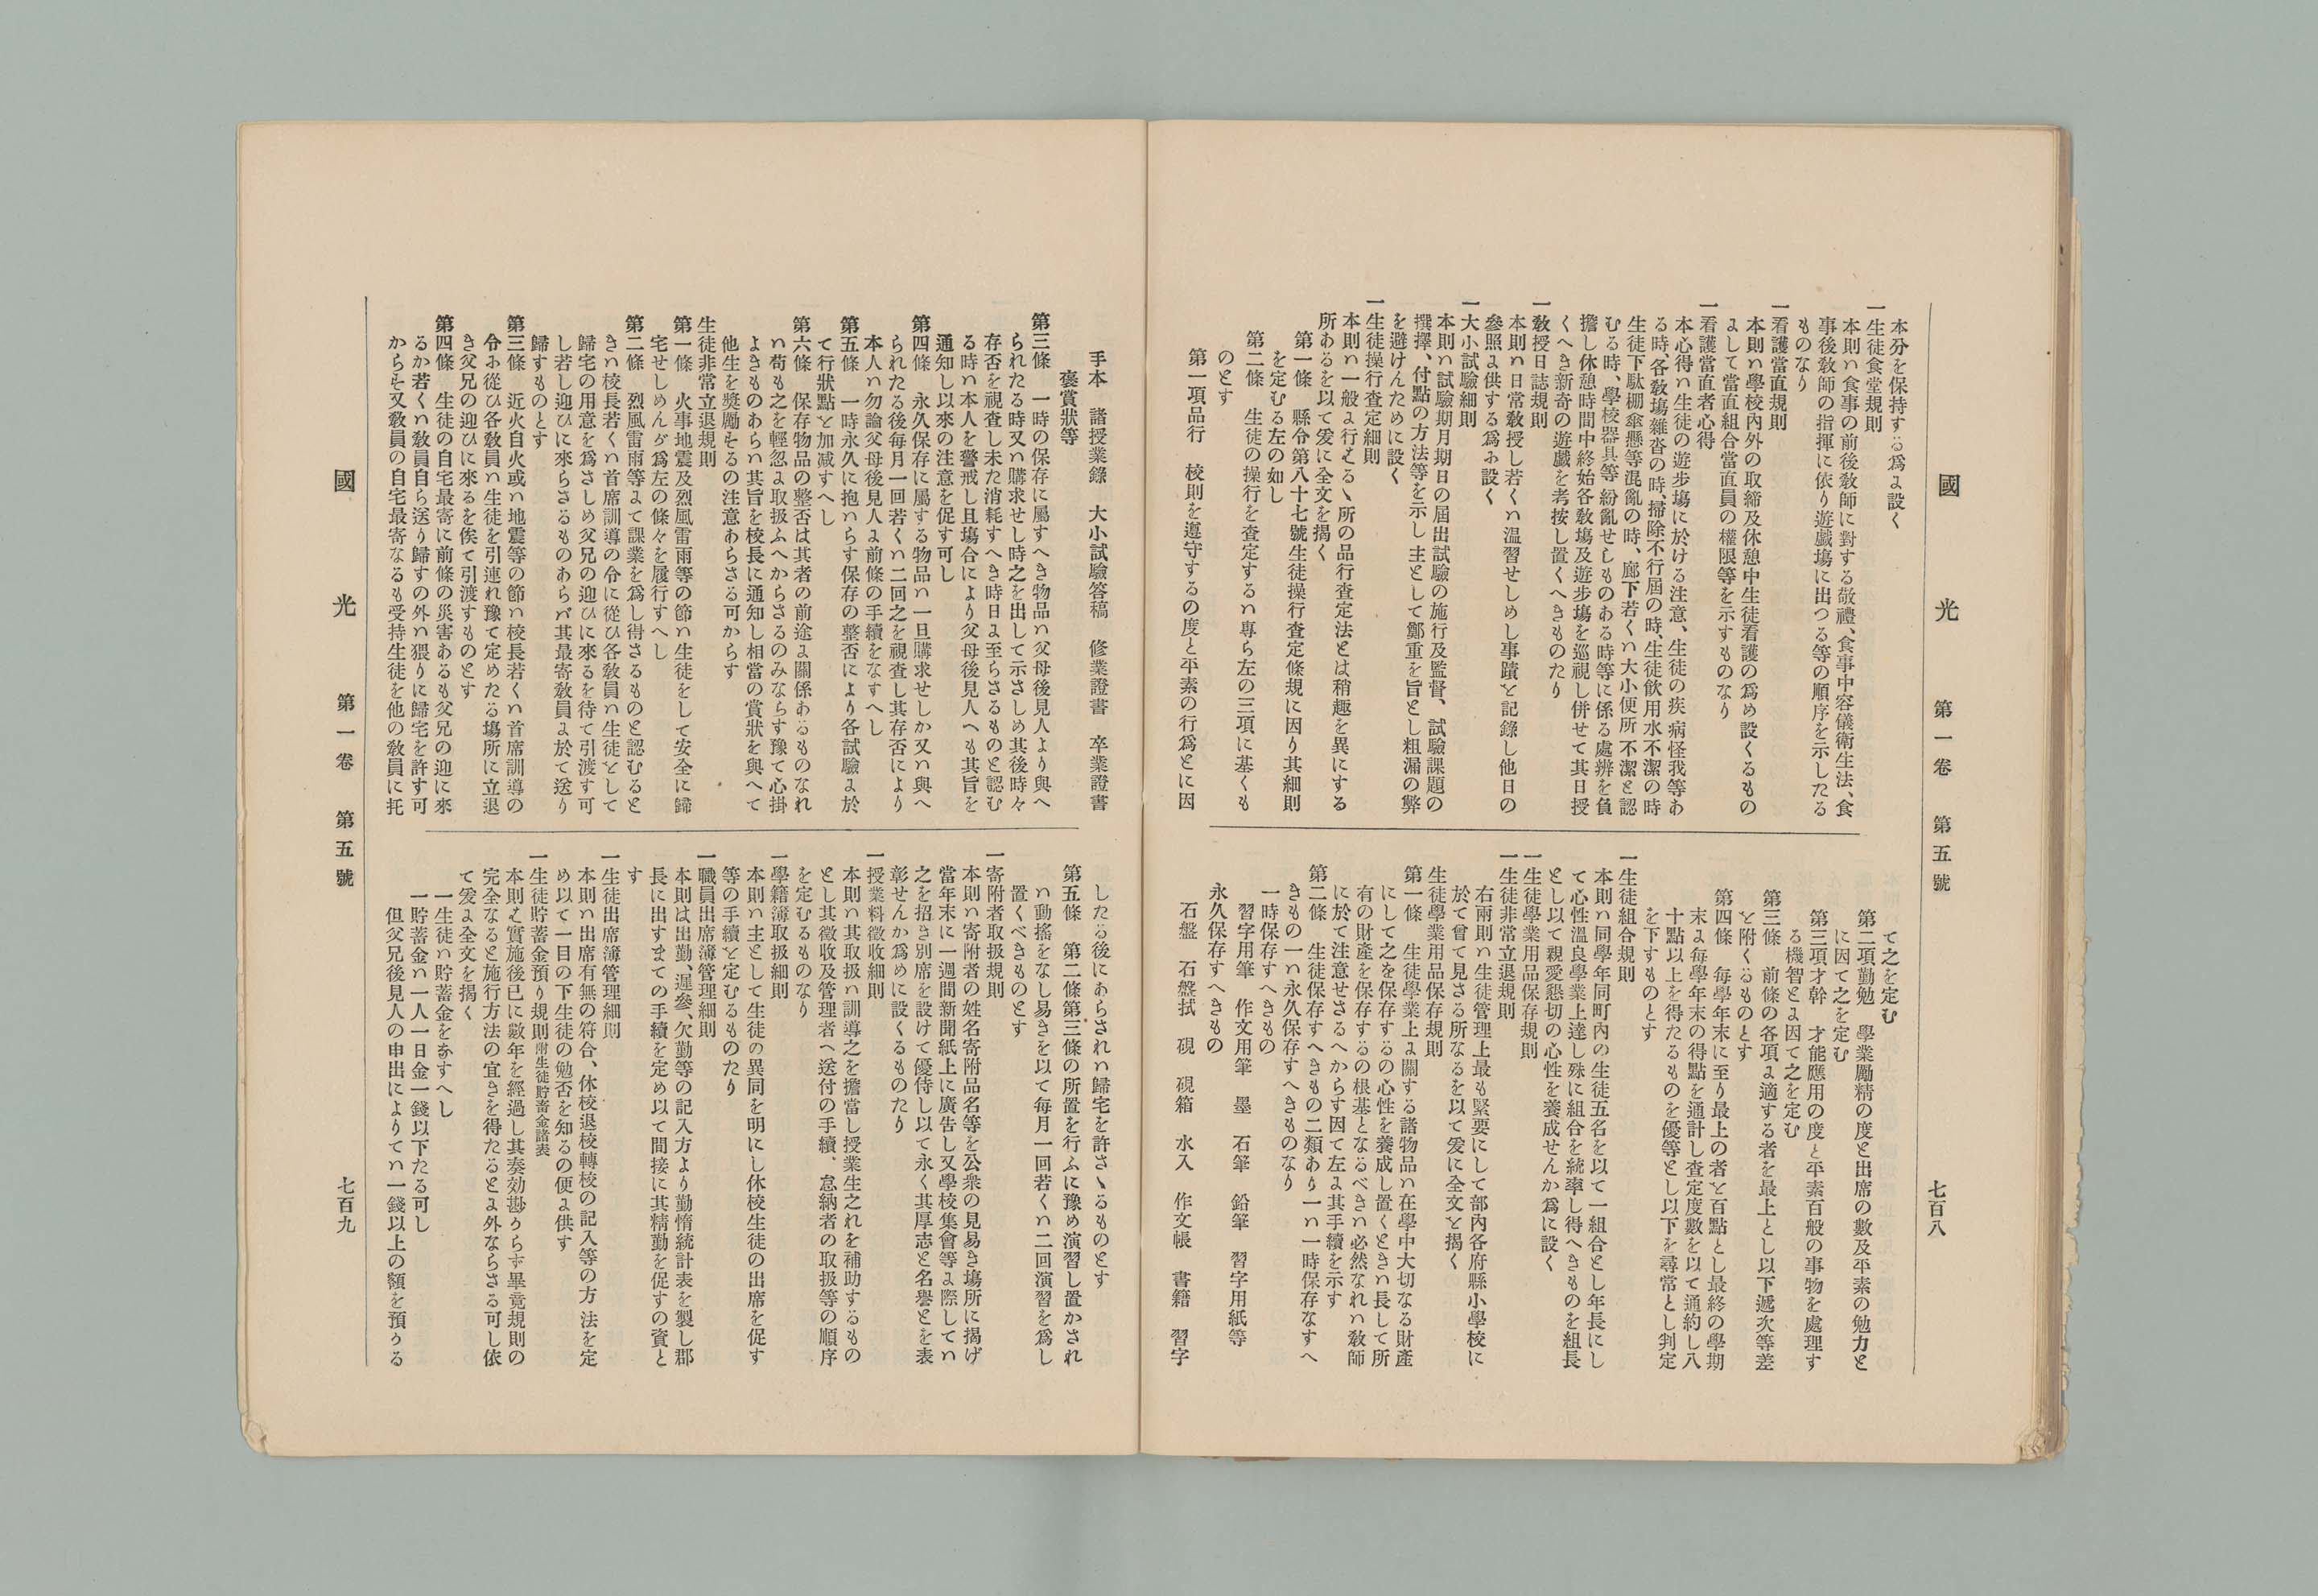 國　光　第一卷　第五號　七百八
本分を保持する爲よ設く
一生徒食堂規則
本則ハ食事の前後敎師に對する敬禮、食事中容儀衛生法、食
事後敎師の指揮に依り遊戯塲に出つる等の順序を示したる
ものなり
一看護當直規則
本則ハ學校內外の取締及休憩中生徒看護の爲め設くるもの
よして當直組合當直員の權限等を示すものなり
一看護當直者心得
本心得ハ生徒の遊步塲に於ける注意、生徒の疾病怪我等あ
る時、各敎塲雜沓の時、掃除不行屆の時、生徒飮用水不潔の時
生徒下駄棚傘懸等混亂の時、廊下若くハ大小便所不潔と認
むる時、學校器具等紛亂せしものある時等に係る處辨を負
擔し休憩時間中終始各敎塲及遊步塲を巡視し併せて其日授
くへき新奇の遊戯を考按し置くへきものたり
一敎授日誌規則
本則ハ日常敎授し若くハ溫習せしめし事蹟を記錄し他日の
參照よ供する爲め設く
一大小試驗細則
本則ハ試驗期月期日の屆出試驗の施行及監督、試驗課題の
撰擇、付點の方法等を示し主として鄭重を旨とし粗漏の弊
を避けんために設く
一生徒操行査定細則
本則ハ一般よ行はるゝ所の品行査定法とは稍趣を異にする
所あるを以て爰に全文を揭く
第一條　縣令第八十七號生徒操行査定條規に因り其細則
を定むる左の如し
第二條　生徒の操行を査定するハ專ら左の三項に基くも
のとす
第一項品行　校則を遵守するの度と平素の行爲とに因
て之を定む
第二項勤勉　學業勵精の度と出席の數及平素の勉力と
に因て之を定む
第三項才幹　才能應用の度と平素百般の事物を處理す
る機智とよ因て之を定む
第三條　前條の各項よ適する者を最上とし以下遞次等差
を附くるものとす
第四條　每學年末に至り最上の者を百點とし最終の學期
末よ每學年末の得點を通計し査定度數を以て通約し八
十點以上を得たるものを優等とし以下を尋常とし判定
を下すものとす
一生徒組合規則
本則ハ同學年同町內の生徒五名を以て一組合とし年長にし
て心性溫良學業上達し殊に組合を統率し得へきものを組長
とし以て親愛懇切の心性を養成せんか爲に設く
一生徒學業用品保存規則
一生徒非常立退規則
右兩則ハ生徒管理上最も緊要にして部內各府縣小學校に
於て曾て見さる所なるを以て爰に全文を揭く
生徒學業用品保存規則
第一條　生徒學業上よ關する諸物品ハ在學中大切なる財產
にして之を保存するの心性を養成し置くときハ長して所
有の財產を保存するの根基となるべきハ必然なれハ敎師
に於て注意せさるへからす因て左よ其手續を示す
第二條　生徒保存すへきもの二類あり一ハ一時保存なすへ
きもの一ハ永久保存すへきものなり
一時保存すへきもの
習字用筆　作文用筆　墨　石筆　鉛筆　習字用紙等
永久保存すへきもの
石盤　石盤拭　硯　硯箱　水入　作文帳　書籍　習字
手本　諸授業錄　大小試驗答稿　修業證書　卒業證書
褒賞狀等
第三條　一時の保存に屬すへき物品ハ父母後見人より與へ
られたる時又ハ購求せし時之を出して示さしめ其後時々
存否を視査し未た消耗すへき時日よ至らさるものと認む
る時ハ本人を警戒し且塲合により父母後見人へも其旨を
通知し以來の注意を促す可し
第四條　永久保存に屬する物品ハ一旦購求せしか又ハ與へ
られたる後每月一回若くハ二回之を視査し其存否により
本人ハ勿論父母後見人よ前條の手續をなすへし
第五條　一時永久に抱ハらす保存の整否により各試驗よ於
て行狀點を加減すへし
第六條　保存物品の整否は其者の前途よ關係あるものなれ
ハ苟も之を輕忽よ取扱ふへからさるのみならす豫て心掛
よきものあらハ其旨を校長に通知し相當の賞狀を與へて
他生を奬勵するの注意あらさる可からす
生徒非常立退規則
第一條　火事地震及烈風雷雨等の節ハ生徒をして安全に歸
宅せしめんが爲左の條々を履行すへし
第二條　烈風雷雨等よて課業を爲し得さるものと認むると
きハ校長若くハ首席訓導の令に從ひ各敎員ハ生徒をして
歸宅の用意を爲さしめ父兄の迎ひに來るを待て引渡す可
し若し迎ひに來らさるものあらバ其最寄敎員よ於て送り
歸すものとす
第三條　近火自火或ハ地震等の節ハ校長若くハ首席訓導の
令に從ひ各敎員ハ生徒を引連れ豫て定めたる塲所に立退
き父兄の迎ひに來るを俟て引渡すものとす
第四條　生徒の自宅最寄に前條の災害あるも父兄の迎に來
るか若くハ敎員自ら送り歸すの外ハ猥りに歸宅を許す可
からす又敎員の自宅最寄なるも受持生徒を他の敎員に托
したる後にあらされハ歸宅を許さゝるものとす
第五條　第二條第三條の所置を行ふに豫め演習し置かされ
ハ動搖をなし易きを以て每月一回若くハ二回演習を爲し
置くべきものとす
一寄附者取扱規則
本則ハ寄附者の姓名寄附品名等を公衆の見易き塲所に揭げ
當年末に一週間新聞紙上に廣告し又學校集會等よ際してハ
之を招き別席を設けて優待し以て永く其厚志と名譽とを表
彰せんか爲めに設くるものたり
一授業料徵收細則
本則ハ其取扱ハ訓導之を擔當し授業生之れを補助するもの
とし其徵收及管理者へ送付の手續、怠納者の取扱等の順序
を定むるものなり
一學籍簿取扱細則
本則ハ主として生徒の異同を明にし休校生徒の出席を促す
等の手續を定むるものたり
一職員出席簿管理細則
本則は出勤、遲參、欠勤等の記入方より勤惰統計表を製し郡
長に出すまての手續を定め以て間接に其精勤を促すの資と
す
一生徒出席簿管理細則
本則ハ出席有無の符合、休校退校轉校の記入等の方法を定
め以て一目の下生徒の勉否を知るの便よ供す
一生徒貯蓄金預り規則附生徒貯蓄金諸表
本則は實施後已に數年を經過し其奏効尠からず畢竟規則の
完全なると施行方法の宜きを得たるとよ外ならさる可し依
て爰よ全文を揭く
一生徒ハ貯蓄金をなすへし
一貯蓄金ハ一人一日金一錢以下たる可し
但父兄後見人の申出によりてハ一錢以上の額を預かる
國　光　第一卷　第五號　七百九